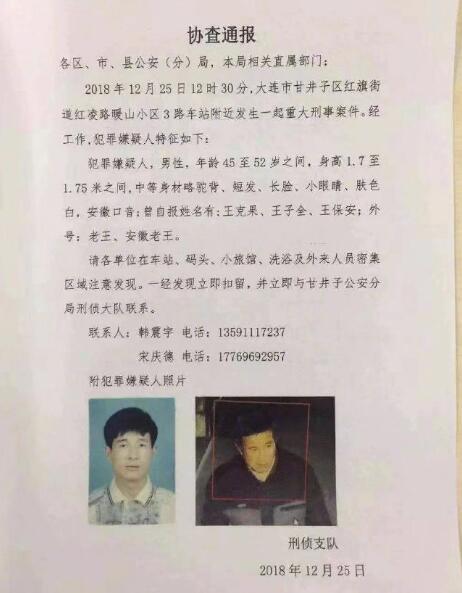 协查通报
各区、市、县公安（分）局，本局相关直属部门：
2018年12月25日12时30分，大连市甘井子区红旗街
道红凌路暖山小区3路车站附近发生一起重大刑事案件。经
工作，犯罪嫌疑人特征如下：
犯罪嫌疑人，男性，年龄45至52岁之间，身高1.7至
1.75米之间，中等身材略驼背、短发、长脸、小眼睛、肤色
白，安徽口音；曾自报姓名有：王克果、王子会、王保安；外
号：老王、安徽老王。
请各单位在车站、码头、小旅馆、洗浴及外来人员密集
区域注意发现。一经发现立即扣留，并立即与甘井子公安分
局刑侦大队联系。
联系人：韩震宇 电话：13591117237
宋庆德 电话：17769692957
附犯罪嫌疑人照片
刑侦支队
2018年12月25日